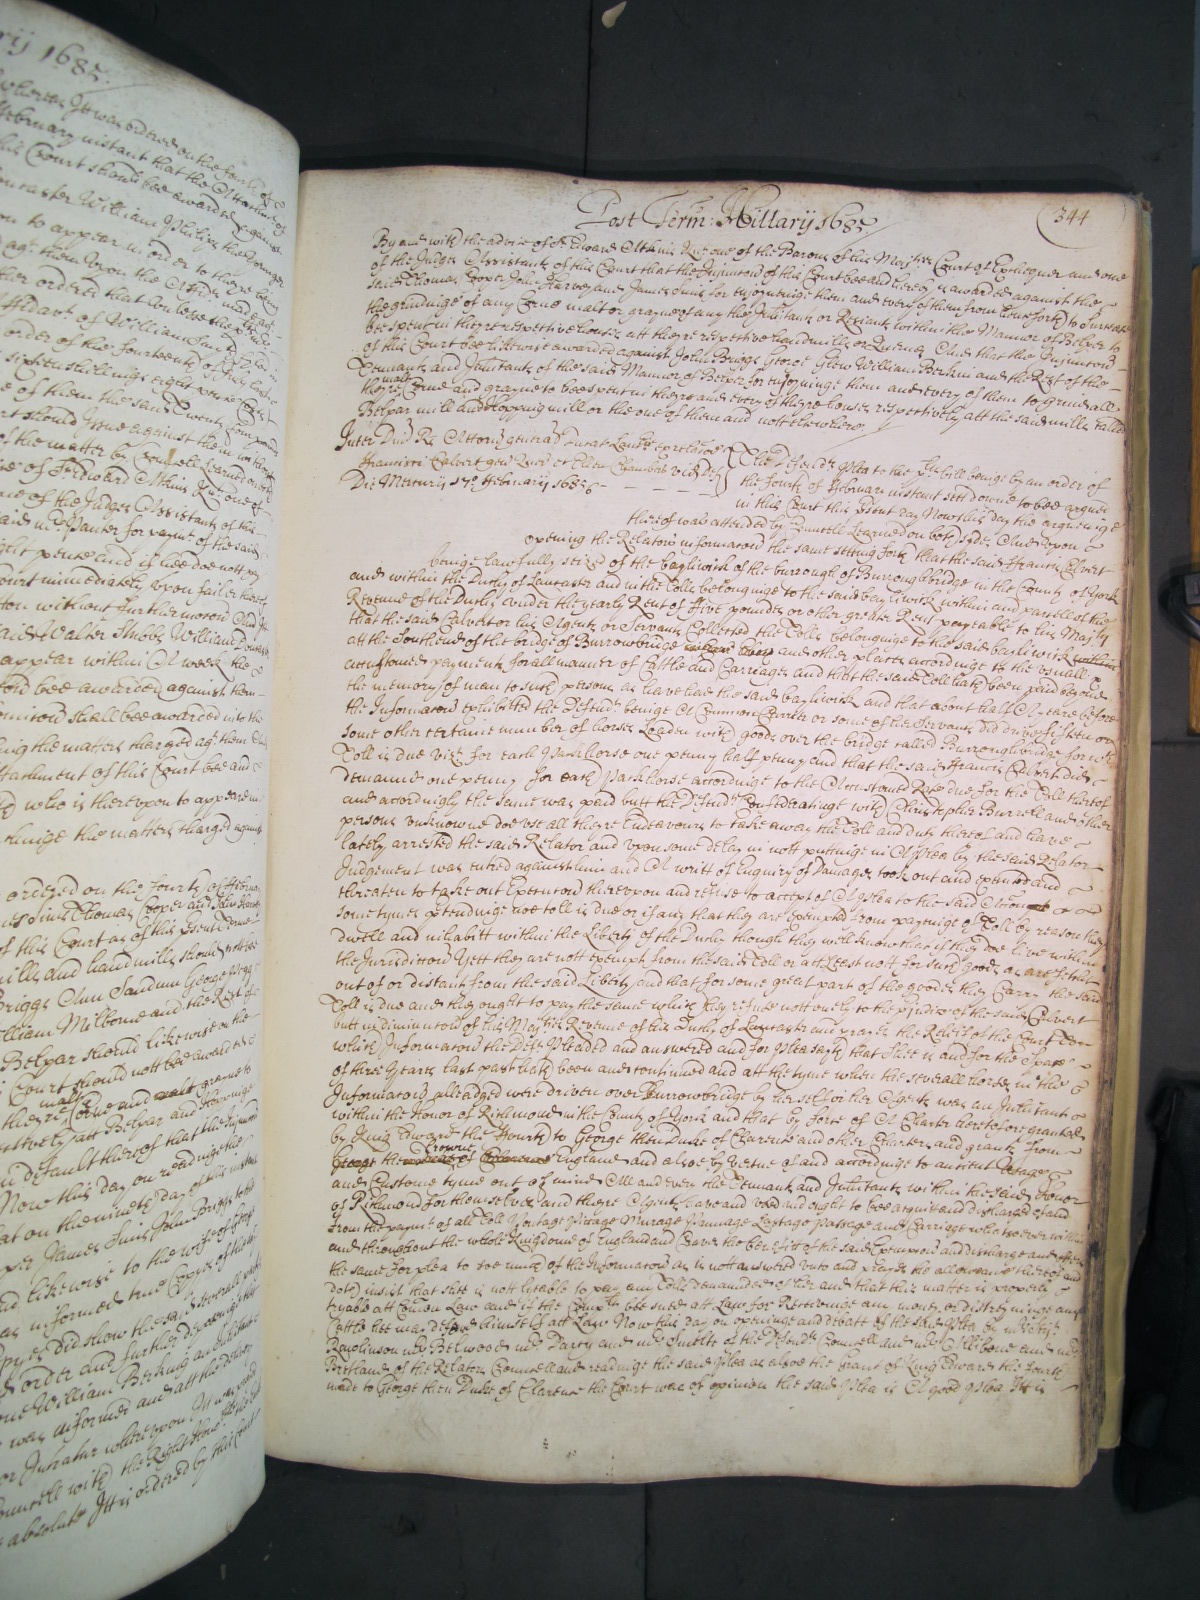 ry 1685
Whereas Itt was ordered on the fourth of
February instant that the Attachment of
this Court should bee awarded against
William Phillips the younger
to appear in order to there being
agt them upon the Affidt made agt
ther ordered that
Affidavt of William
order of the fourteenth of July last
sixteen shillings eight pence Cost
e of them the said Twenty four
rt should Issue against them
of the matter by Councell learned on
of Sr Edward Atkins Knt one of
one of the Judges Assistants of this
said Mr Panter for paymt of the said
ight pence and if hee doe nott pay
Court immediately upon failer thereof
ton without further motion And
said Walter Stubbs William
appear within A week the
bee awarded against them
shall bee awarded into the
ing the matters charged agt them
ttachment of this Court bee and
who is thereupon to appeare in
chinge the matters charged against
ordered on the fourth of February
Thomas Cooper and John Harvey
of this Court as of this Present Terme
mills and hand mills should nott bee
Briggs Ann Sandum George
William Milborne and the Rest of
Belpar should likewise on the
Court should nott bee awarded
theyre malt Corne and grayne to
att Belpar and Hoppinge
in default thereof that the Injunction
Now this day on readinge the
that on the nineth day of this instant
James Sims John Briggs
likewise to the wife of George
as informed true Copyes of the
did show the said severall
order and further deposeinge that
William Berkin an Inhabitant
was informed and att the delivery
whereupon Itt was
Councell with the Right Honoble
absolute Itt is ordered by this Court
Post Term: Hillarij 1685
344
By and with the advise of Sr Edward Atkins Knt one of the Barons of his Majties Court of Exchequer and one
of the Judges Assistants of this Court that the Injunction of this Court bee and hereby is awarded against the
said Thomas Cooper John Harvey and James Sims for enjoyninge them and every of them from henceforth to surcease
the grindinge of any Corne malt or grayne of any the Inhitants or Resiants within the Mannor of Belper to
bee spent in theyre respective houses att theyre respective handmills or Quernes And that the Injunction
of this Court bee likewise awarded against John Briggs George Glew William Berkin and the Rest of the
Tennants and Inhitants of the said Mannor of Belper for enjoyninge them and every of them to grind all
theyre malt Corne and grayne to bee spent in theyre and every of theyre houses respectively att the said mills called
Belpar mill and Hoppinge mill or the one of them and nott elsewhere
Inter Dnu Re Attorn general Ducat Lanc ex relacoe
Francisci Calvert gen Quer et Elizu Chambers vid Deft
Die Mercurij 17o February 1685/6
The Defendts Plea to the Engl bill beinge by an order of
the fourth of February instant sett downe to bee argued
in this Court this present day Now this day the argueinge
thereof was attended by Councell Learned on both sides And upon
openinge the Relators informacon the same setting forth that the said Francis Calvert
beinge lawfully seized of the bayliwick of the burrough of Burroughbridge in the County of York
and within the Dutchy of Lancaster and in the Tolls belonginge to the said bayliwick within and parcell of the
Revenue of the Dutchy under the yearly Rent of Five pounds or other greater Rent payeable to his Majty
that the said Calvert or his Agents or Servants Collected the Tolls belonginge to the said bayliwick
att the Southend of the bridge of Burrowbridge and other places accordinge to the usuall
accustomed payments for all manner of Cattle and Carriages and that the said Toll hath been paid beyond
the memory of man to such persons as have had the said bayliwick and that about half A yeare before
the Informacon exhibited the Defendt beinge A Common Carrier or some of her Servants did drive fifteen or
some other certaine number of horses Loaden with goods over the bridge called Burroughbridge for wch
Toll is due vizt for each Packhorse one penny half penny and that the said Francis Calvert did
demannd one penny for each Packhorse accordinge to the Accustomed Rate due for the Toll thereof
and accordingly the same was paid butt the Defendt Confederatinge with Christopher Burrell and other
persons unknowne doe use all theyre Endeavours to take away the Toll and duty thereof and have
lately arrested the said Relator and upon some delay in nott puttinge in A Plea by the said Relator
Judgement was entred against him and A writt of Enquiry of Damages took out and executed and
threaten to take out Execucon thereupon and refuse to accept of A Plea to the said Accon or
sometymes pretendinge noe toll is due or if any that they are exempted from payeinge of Toll by reason they
dwell and inhabitt within the Liberty of the Dutchy though they well know that if they doe live within
the Jurisdiccon Yett they are nott exempt from the said Toll or att Least nott for such goods as are fetcht
out of or distant from the said Liberty and that for some great part of the goodes they Carry the said
Toll is due and they ought to pay the same which they refuse nott onely to the prejudice of the said Calvert
butt in diminucon of his Majties Revenue of his Dutchy of Lancaster and prayes the Releife of the Court
which Informacon the Deft Pleaded and answered and for Plea sayth that shee is and for the space
of three yeares last past hath been and continued and att the tyme when the severall horses in the
Informacon alleadged were driven over Burrowbridge by herself or her Agents was an Inhitant
within the Honor of Richmond in the County of York and that by force of A Charter heretofore granted
by King Edward the Fourth to George then Duke of Clarence and other Charters and grants from
the Crowne of England and alsoe by vertue of and accordinge to antient Usage
and Custome tyme out of mind All and every the Tennants and Inhitants within the said Honor
of Richmond for themselves and theyre Agents have and used and ought to bee acquitt and discharged of and
from the paymt of all Toll Pontage Picage Murage Pannage Lastage Passage and Carriage whatsoever within
and throughout the whole Kingdome of England and Craves the benefitt of the said Exempcon and discharge and offers
the same for plea to soe much of the Informacon as is nott answered unto and prayes the allowance thereof and
doth insist that shee is nott lyeable to pay any Toll demannded of her and that this matter is properly
tryable att Comon Law and if the Complt bee sued att Law for Receiveinge any money or distreyninge any
cattle hee may defend himselfe att Law Now this day on openinge and debate of the said Plea by
Rawlinson Mr Belwood Mr Darcy and Mr Smelts of the Defendts Councell and Mr Allibone and Mr
Portland of the Relators Councell and readinge the said Plea as alsoe the grant of King Edward the Fourth
made to George then Duke of Clarence the Court was of opinion the said Plea is A good Plea Itt is